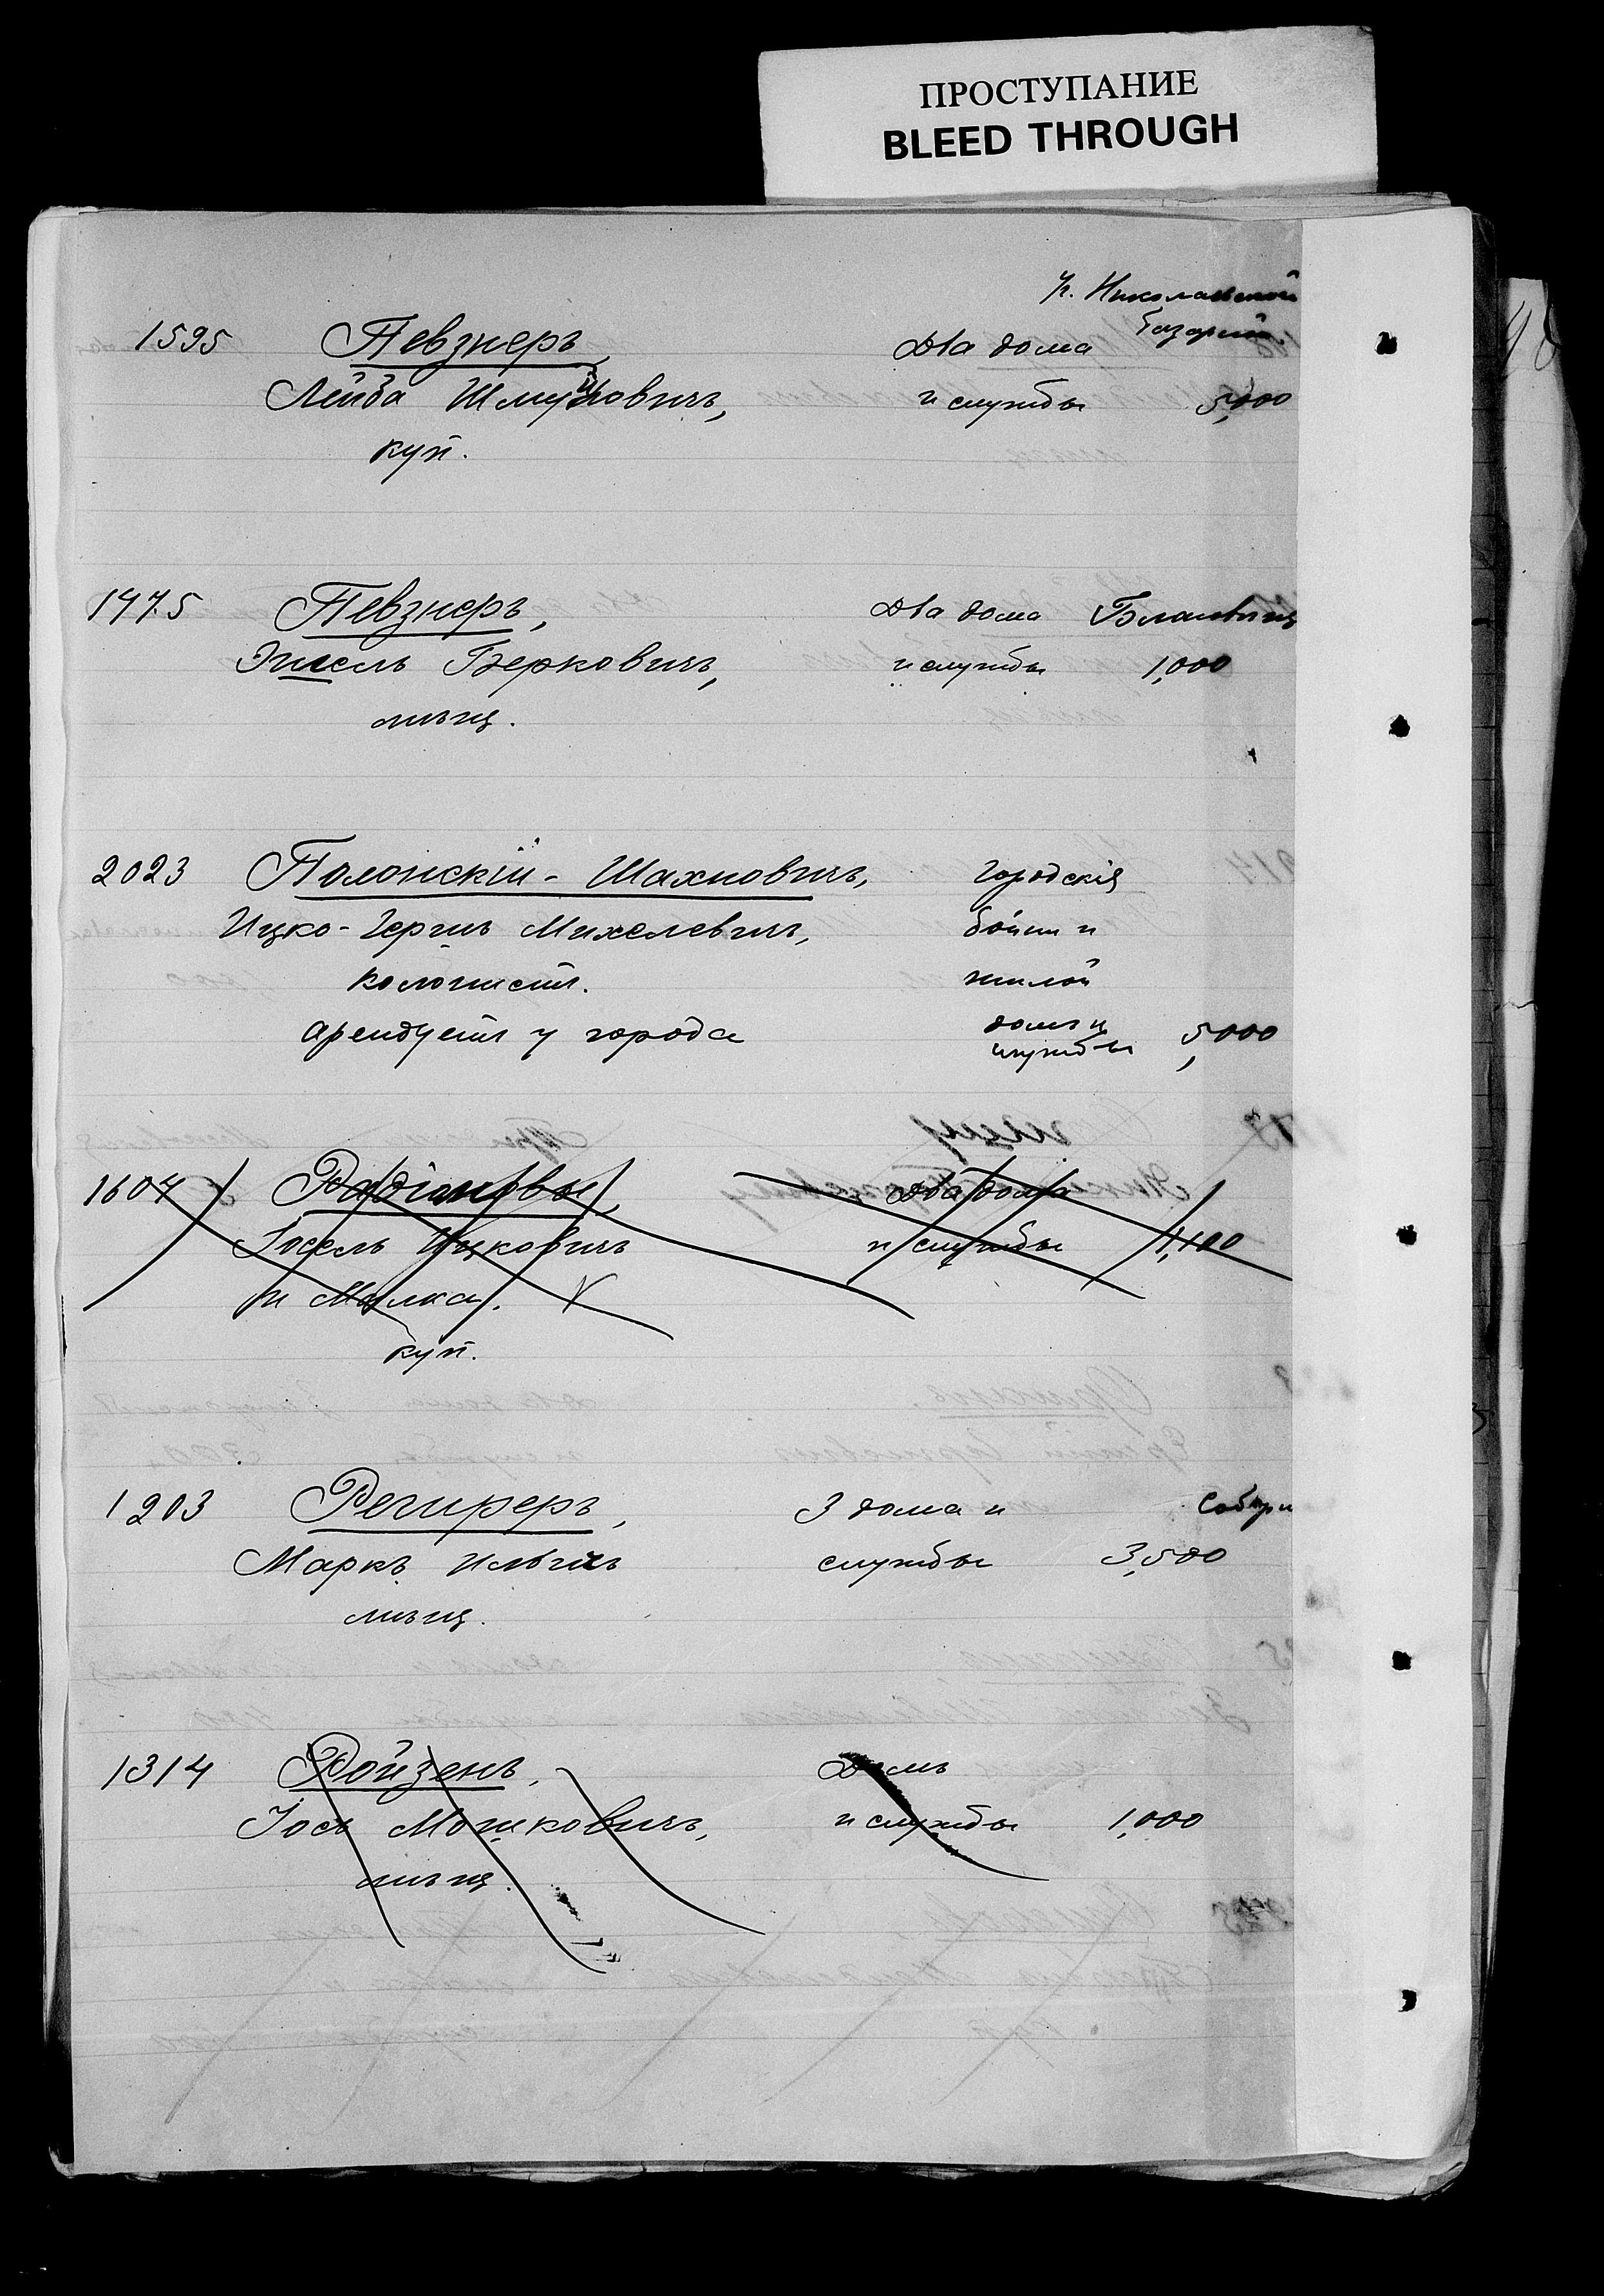 ПРОСТУПАНИЕ
BLEED THROUGH
уг. Николаевской
базарной
1595 Певзнеръ, Два дома
Лейба Шмуйловичъ, и службы 5,000
куп.
1475 Певзнеръ, Два дома
Эшель Берковичъ, и службы 1,000
мѣщ.
2023 Полонскій - Шахновичъ, Городскія
Ицко-Гершъ Михелевичъ, бойни и
колонистъ. жилой
арендуетъ у города домъ и
службы 5,000
1607 Два дома
Іосель Ицковичъ и службы 1,100
и Малка.
куп.
1203 Региреръ, 3 дома и Собори
Маркъ Ильичъ службы 3,500
мѣщ.
1314 Ройзенъ, Домъ
Іось Мошковичъ, и службы 1,000
мѣщ.